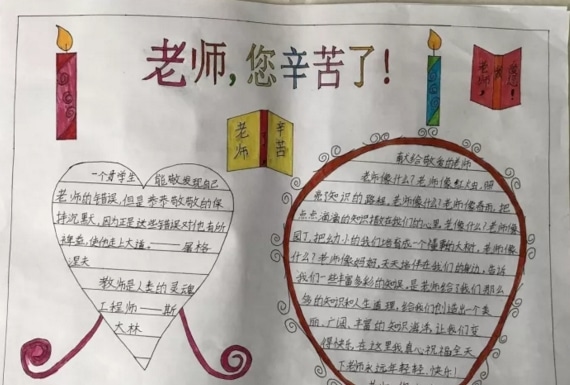 老师,您辛苦了!
老师,
您!
老师
辛苦
一个好学生 能敬发现自己
老师的错误,但是 恭恭敬敬的保
持沉默,因为正是这些错误对他有助
使他走上大道。——屠格
涅夫
教师是人类的灵魂
工程师——斯
大林
献给敬爱的老师
老师像什么?老师像红火虫,照
亮了知识的路程,老师像什么?老师像春雨,把
点点滴滴的知识撒在我们的心里,老像什么?老师像
园丁,把幼小的我们培育成一个个的大树,老师像
什么?老师像妈妈,天天陪伴在我们的身边,告诉
我们一些丰富多彩的知识,是老师给了我们那么
多的知识和人生道理,给我们创造出一个美
丽、广阔、丰富的知识海洋,让我们变
得快乐,在这里我真心祝福全天
下老师永远年轻、快乐!